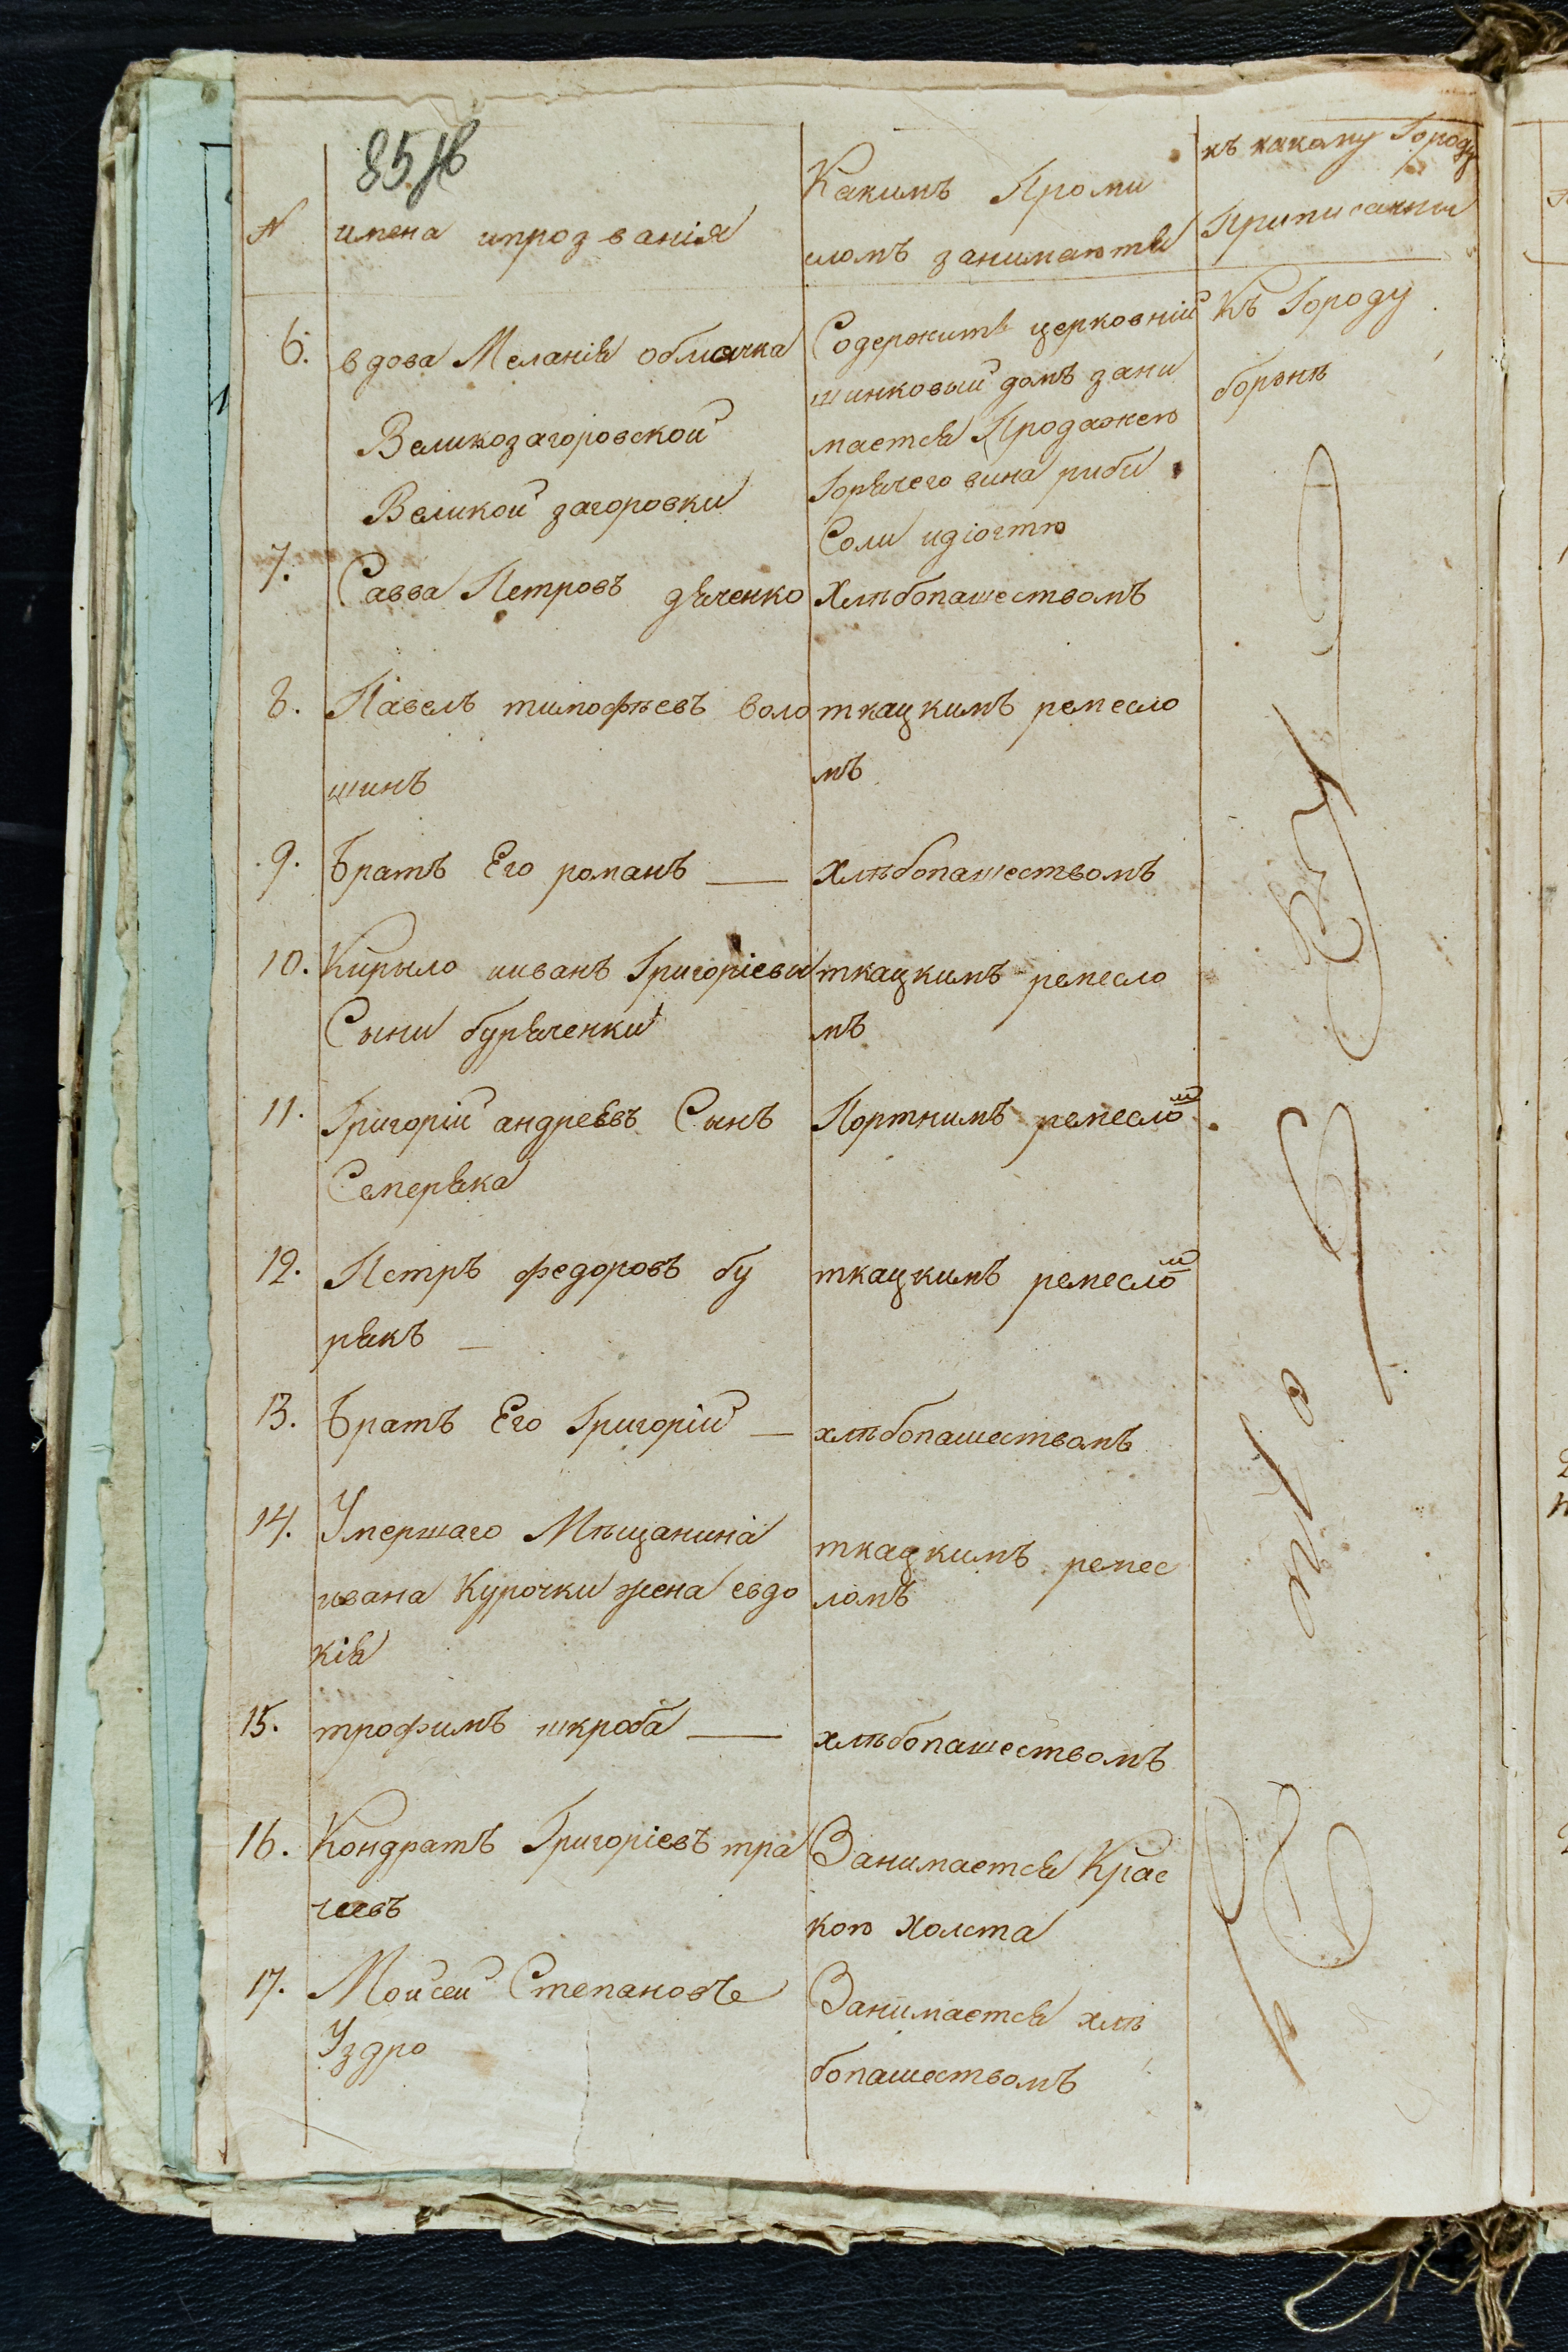 85
N имена ипрозванія Какимъ Проми
сломъ занимаются къ какому Городу
Приписанны
6. вдова Меланія облячка
Великозагоровской
Великой загоровки
Содержитъ церковній
шинковый домъ зани
мается Продажею
Горячего вина риби
Соли идіогтю
Къ Городу
борзнѣ
7. Савва Петровъ дяченко Хлѣбопашествомъ
8. Павелъ тимофѣевъ воло
шинъ
ткацкимъ ремесло
мъ
9. Братъ Его романъ — хлѣбопашествомъ
10. Кирыло ииванъ Григоріеви
Сыни буряченки
ткацкимъ ремесло
мъ
11. Григорій андреевъ Сынъ
Семеряка
Портнимъ ремеслом
12. Петръ федоровъ бу
рякъ —
ткацкимъ ремеслом
13. Братъ Его Григорій — хлѣбопашествомъ
14. Умершаго Мѣщанина
ивана Курочки жена евдо
кія
ткацкимъ ремес
ломъ
15. трофимъ шкроба — хлѣбопашествомъ
16. Кондратъ Григоріевъ тра
чевъ
Занимается Крас
кою Холста
17. Мойсей Степановъ
Уздро
Занимается хлѣ
бопашествомъ